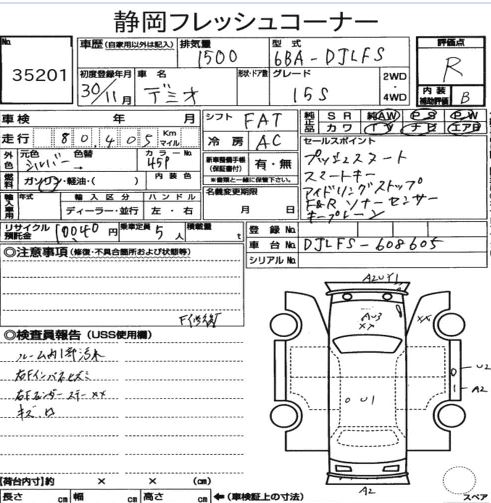 静岡フレッシュコーナー
No.
35201
車歴 (自家用以外は記入) 排気量 1500 型式 6BA-DJLFS
評価点 R
初度登録年月 30/11月 車名 デミオ 形状・ドア数 グレード 15S 2WD・4WD
内装補助評価 B
車検 年 月 シフト FAT
走行 80,405 Km マイル 冷房 AC
純正品 SR 純AW PS PW
カワ TV ナビ エアB
外色 元色 シルバー 色替 カラーNo. 45P 内装色
新車整備手帳(保証書付) 有・無
※書類と一緒に保管。
燃料 ガソリン・軽油・( )
セールスポイント
プッシュスタート
スマートキー
アイドリングストップ
F&Rソナーセンサー
キープレーン
輸入車用 年式 輸入区分 ハンドル
ディーラー・並行 左・右
名義変更期限
月 日
リサイクル預託金 10040円 乗車定員 5人 積載量 t
登録No.
車台No. DJLFS-608605
シリアルNo.
◎注意事項 (修復・不具合箇所および状態等)
F修復
◎検査員報告 (USS使用欄)
ルーム内1部汚れ
右Fインパネキズ
右Fフェンダーステー××
キズ
A2U1
AU3
××
××
U1
U2
A2
A2
【荷台内寸】約 × × (cm)
長さ cm 幅 cm 高さ cm ←(車検証上の寸法)
スペア